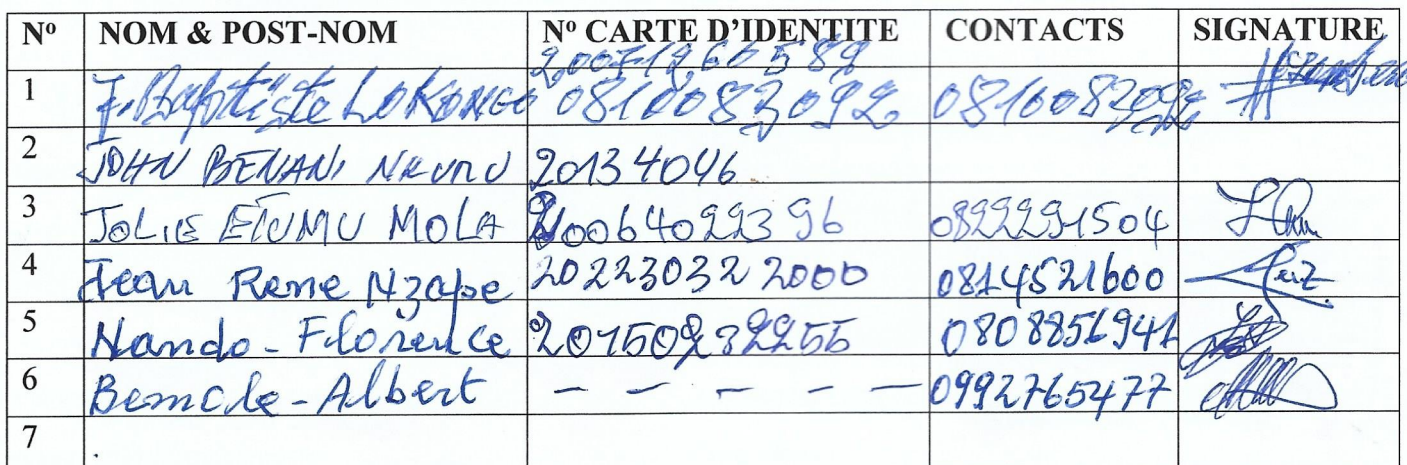 Nº NOM & POST-NOM Nº CARTE D'IDENTITE CONTACTS SIGNATURE
1 J. Baptiste LOKONGO 0810083092 0810083092
2 JOHN BENANI NKUMU 20134046
3 JOLIE ETUMU MOLA 20064022396 0822291504
4 Jean Rene Nzape 202230322000 0814521600
5 Nando - Florence 20150232255 0808856941
6 Bemole - Albert - - - - - 0992765477
7